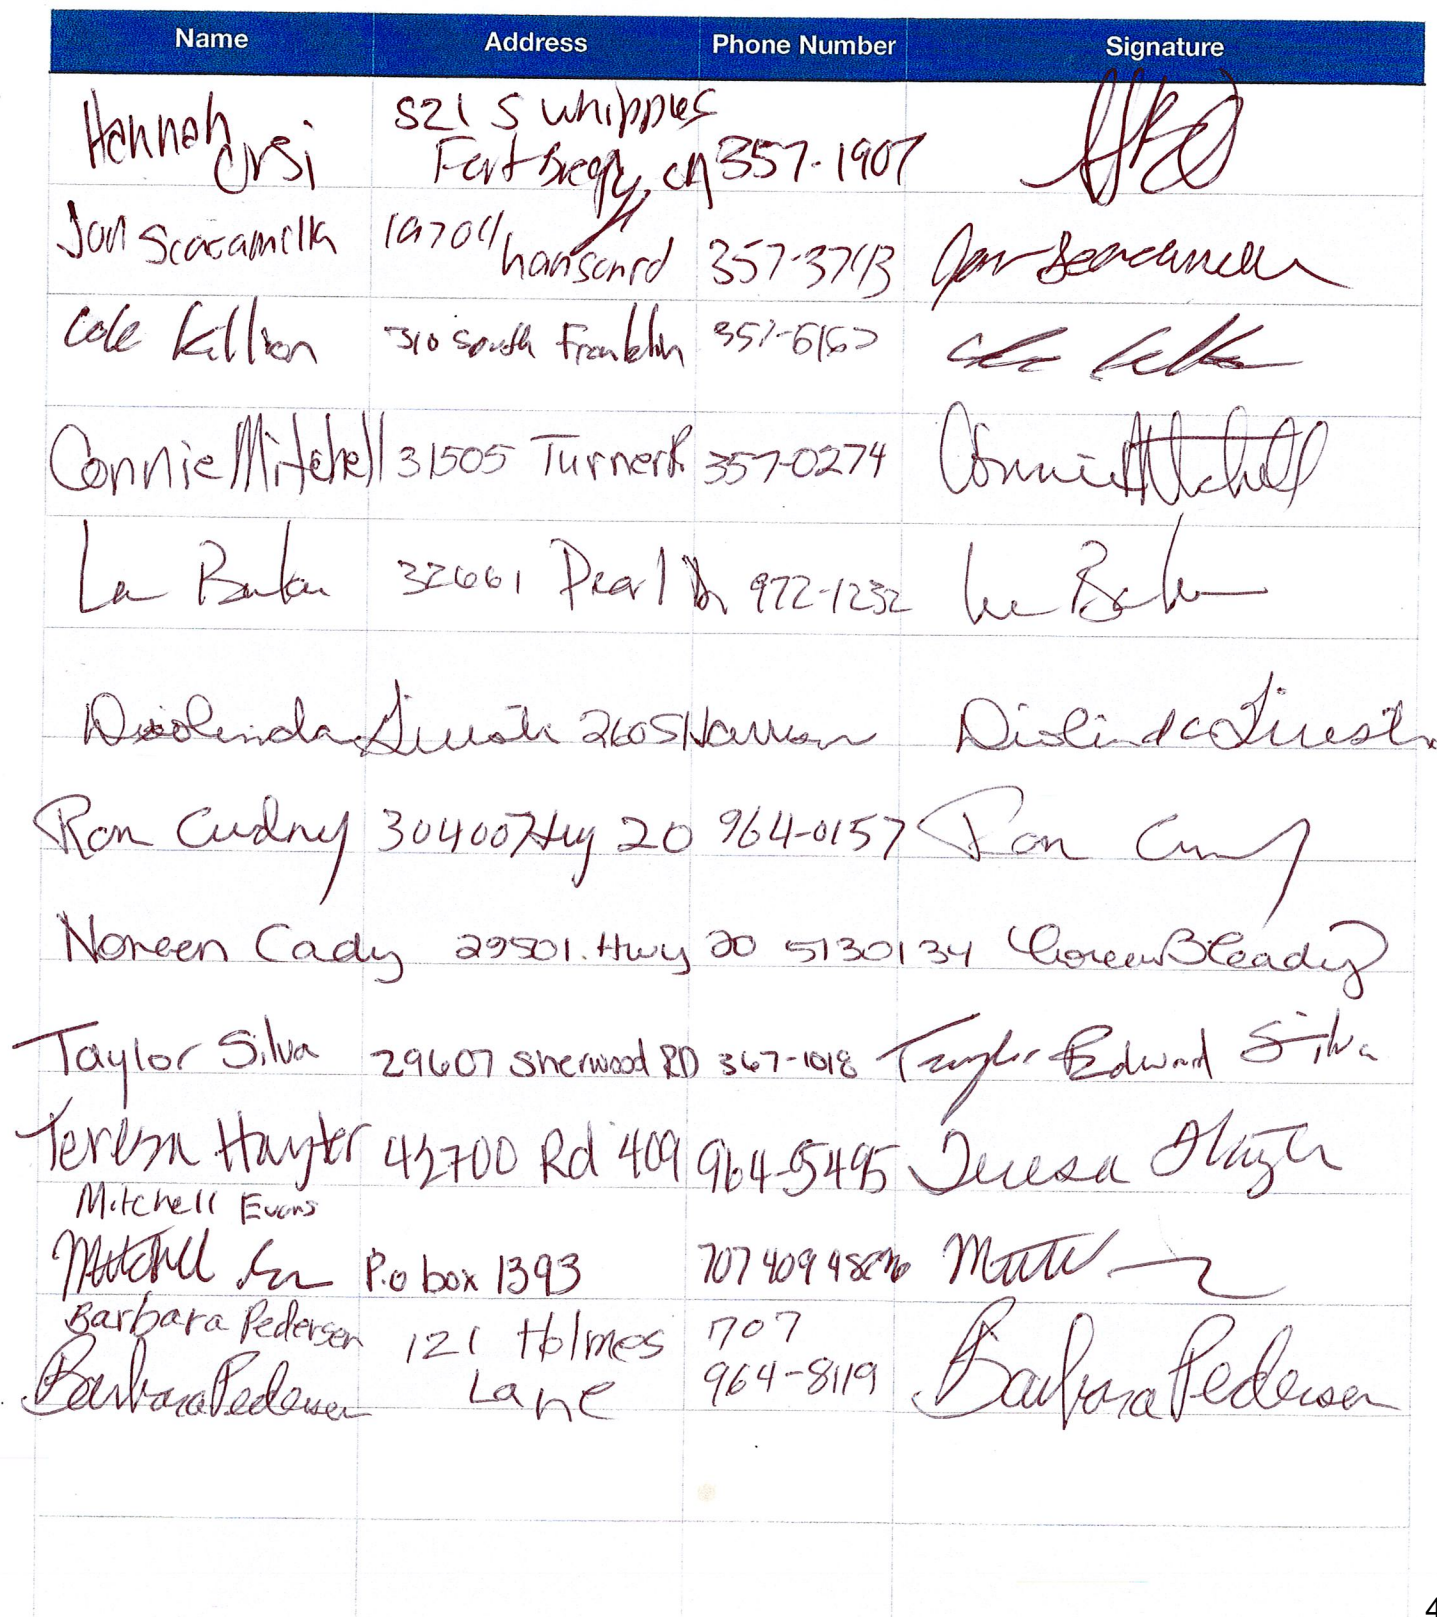 Name Address Phone Number Signature
Hannah Orsi 521 S Whipple
Fort Bragg, CA 357-1907
Jon Scaramella Hansen rd 357-3743 Jon Scaramella
Cole Killion 310 South Franklin Cole Killion
Connie Mitchell 31505 Turner R 357-0274 Connie Mitchell
32661 Pearl Dr 972-1232
Diolinda 260 S Harrison Diolinda
Ron Cudney 30400 Hwy 20 964-0157 Ron
Noreen Cady 29501 Hwy 20 5130134 Noreen B Cady
Taylor Silva 29607 Sherwood RD 367-1018 Taylor Edward Silva
Teresa Hayter 42700 Rd 409 964-5495 Teresa Hayter
Mitchell Evans
Mitchell P.o box 1393 707 409
Barbara Pedersen 121 Holmes 707
Barbara Pedersen Lane 964-8119 Barbara Pedersen
4